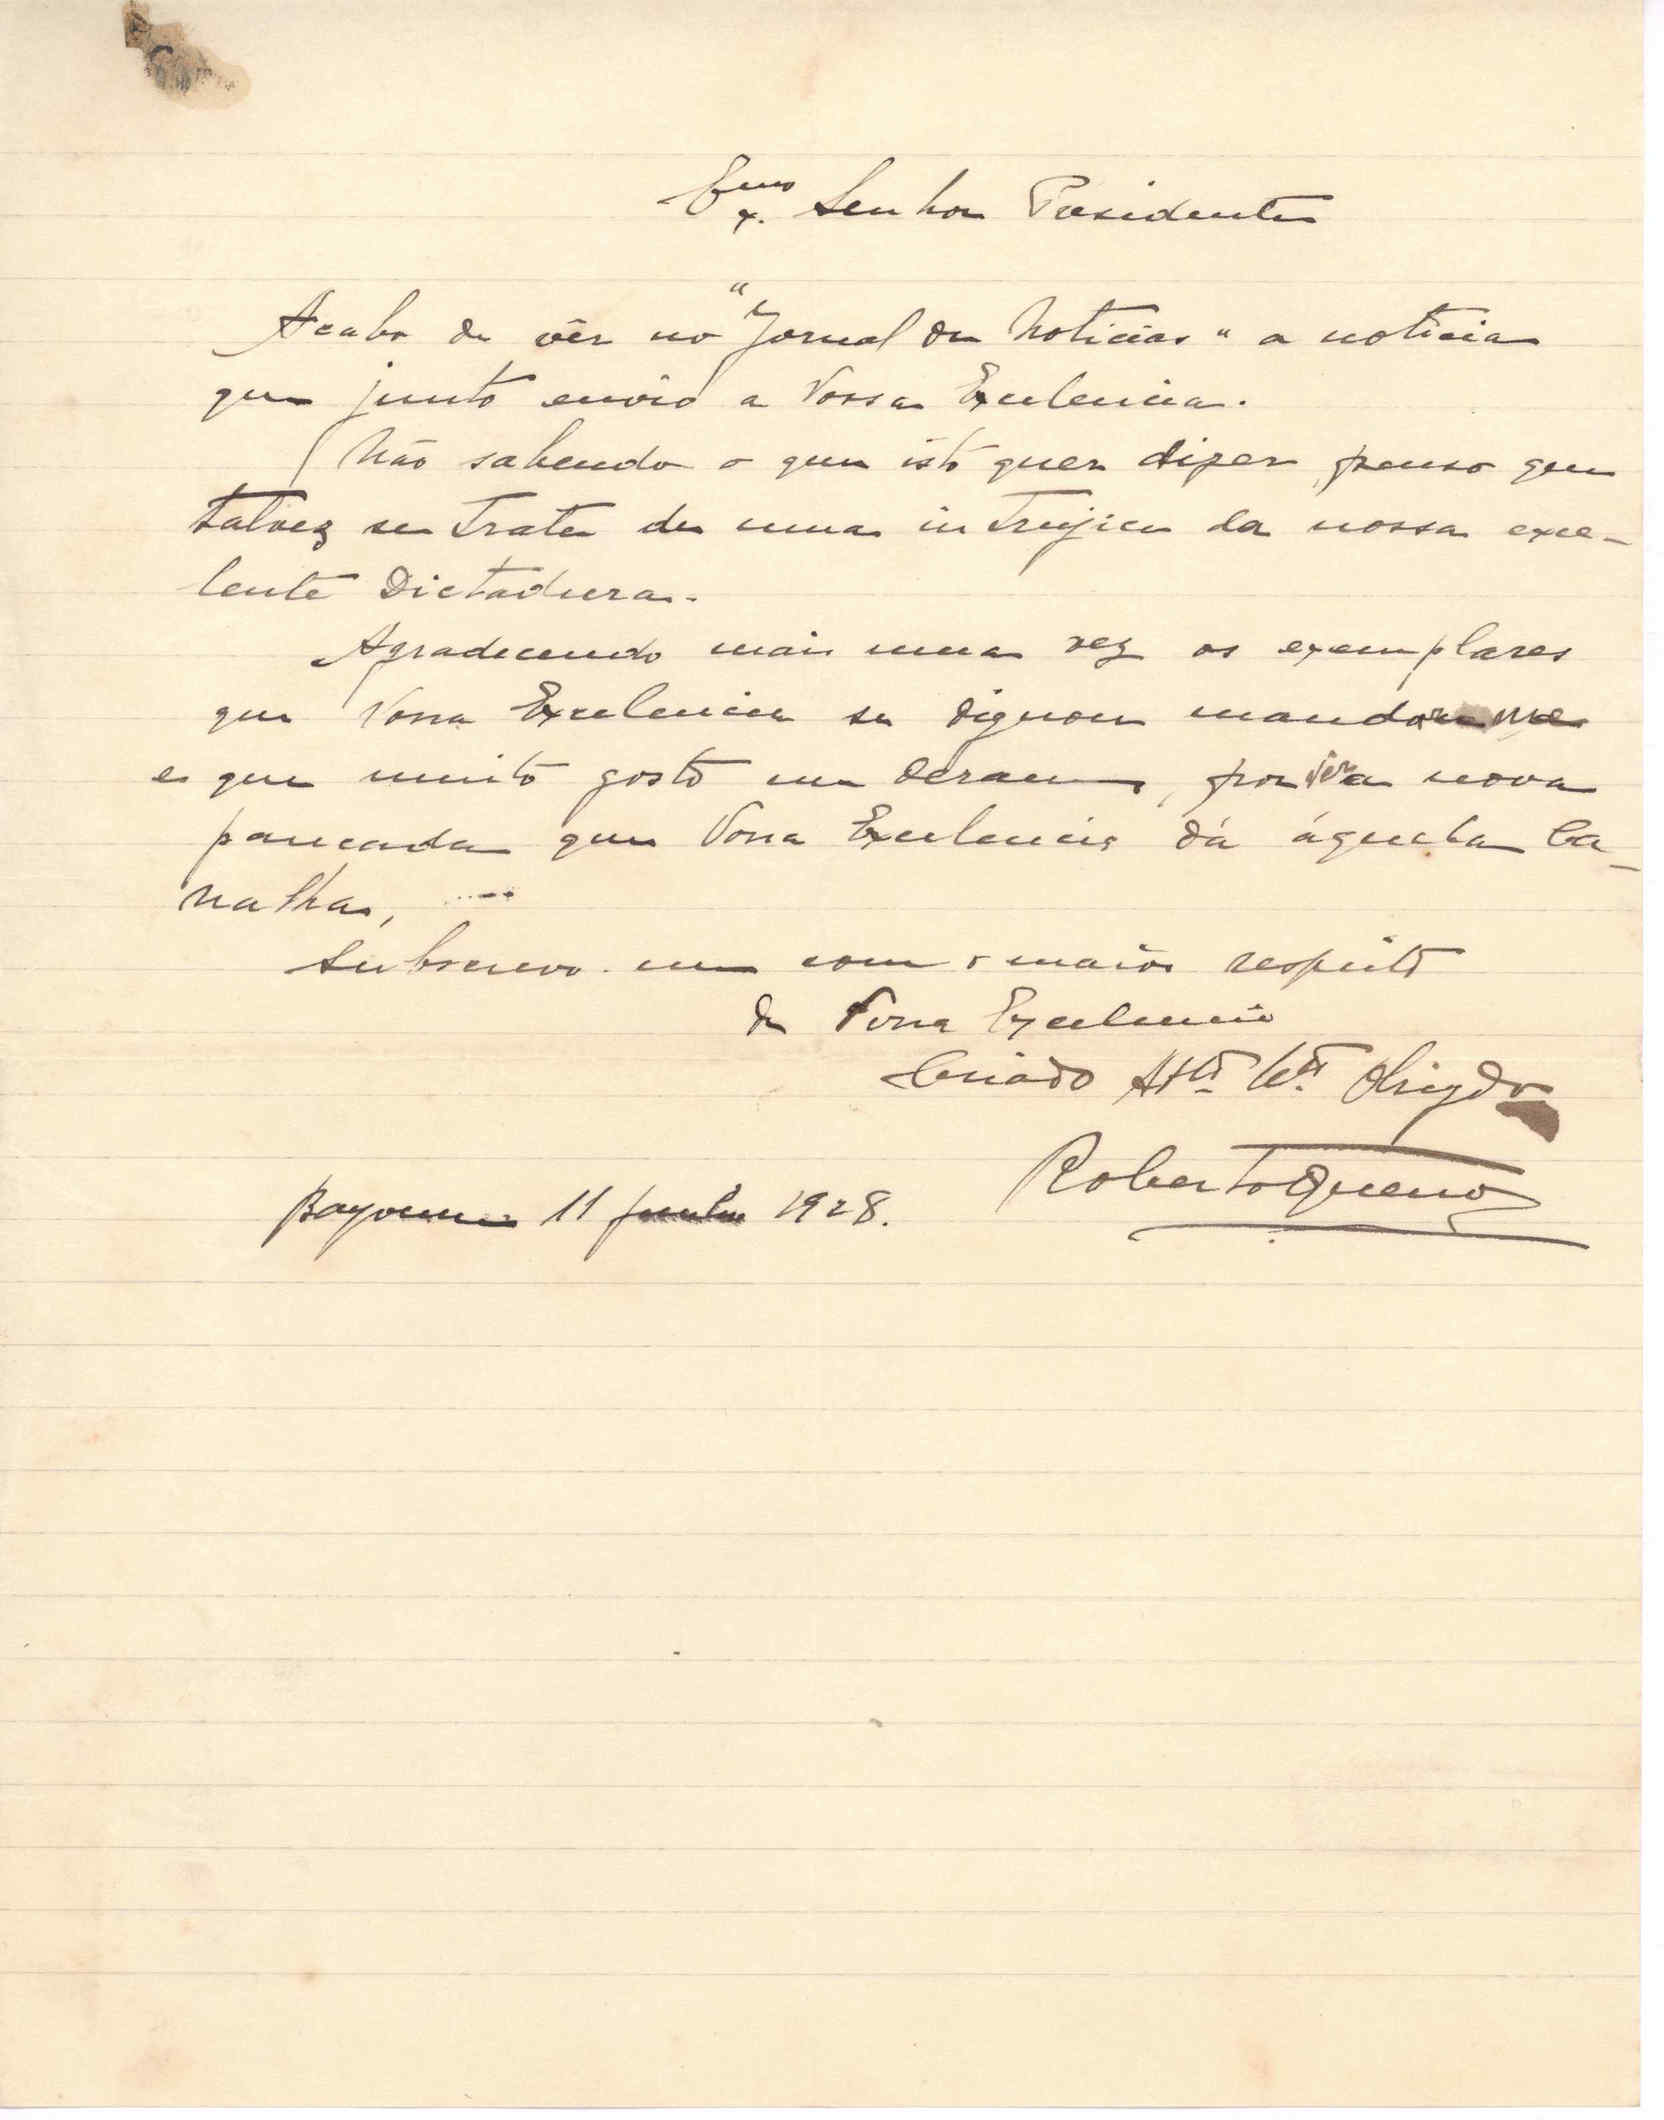 Ex.mo Senhor Presidente
Acabo de vêr no "Jornal de Noticias" a noticia
que junto envio a Vossa Excelencia.
Não sabendo o que isto quer dizer, penso que
talvez se trate de uma intrujice da nossa exce-
lente Dictadura.
Agradecendo mais uma vez os exemplares
que Vossa Excelencia se dignou mandar-me
e que muito gosto me deram, por ver a nova
pancada que Vossa Excelencia dá áquela Ca-
nalha, ....
Subscrevo-me com o maior respeito
de Vossa Excelencia
Criado Att.º Obrigdo
Roberto Queno
Bayonne 11 1928.